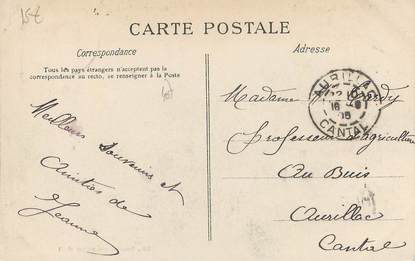 15€
CARTE POSTALE
Correspondance
Adresse
Tous les pays étrangers n'acceptent pas la
correspondance au recto, se renseigner à la Poste
Meilleurs Souvenirs et
Amitiés de
Jeanne
AURILLAC
16
CANTAL
Madame
Professeur d'agriculture
Au Buis
Aurillac
Cantal